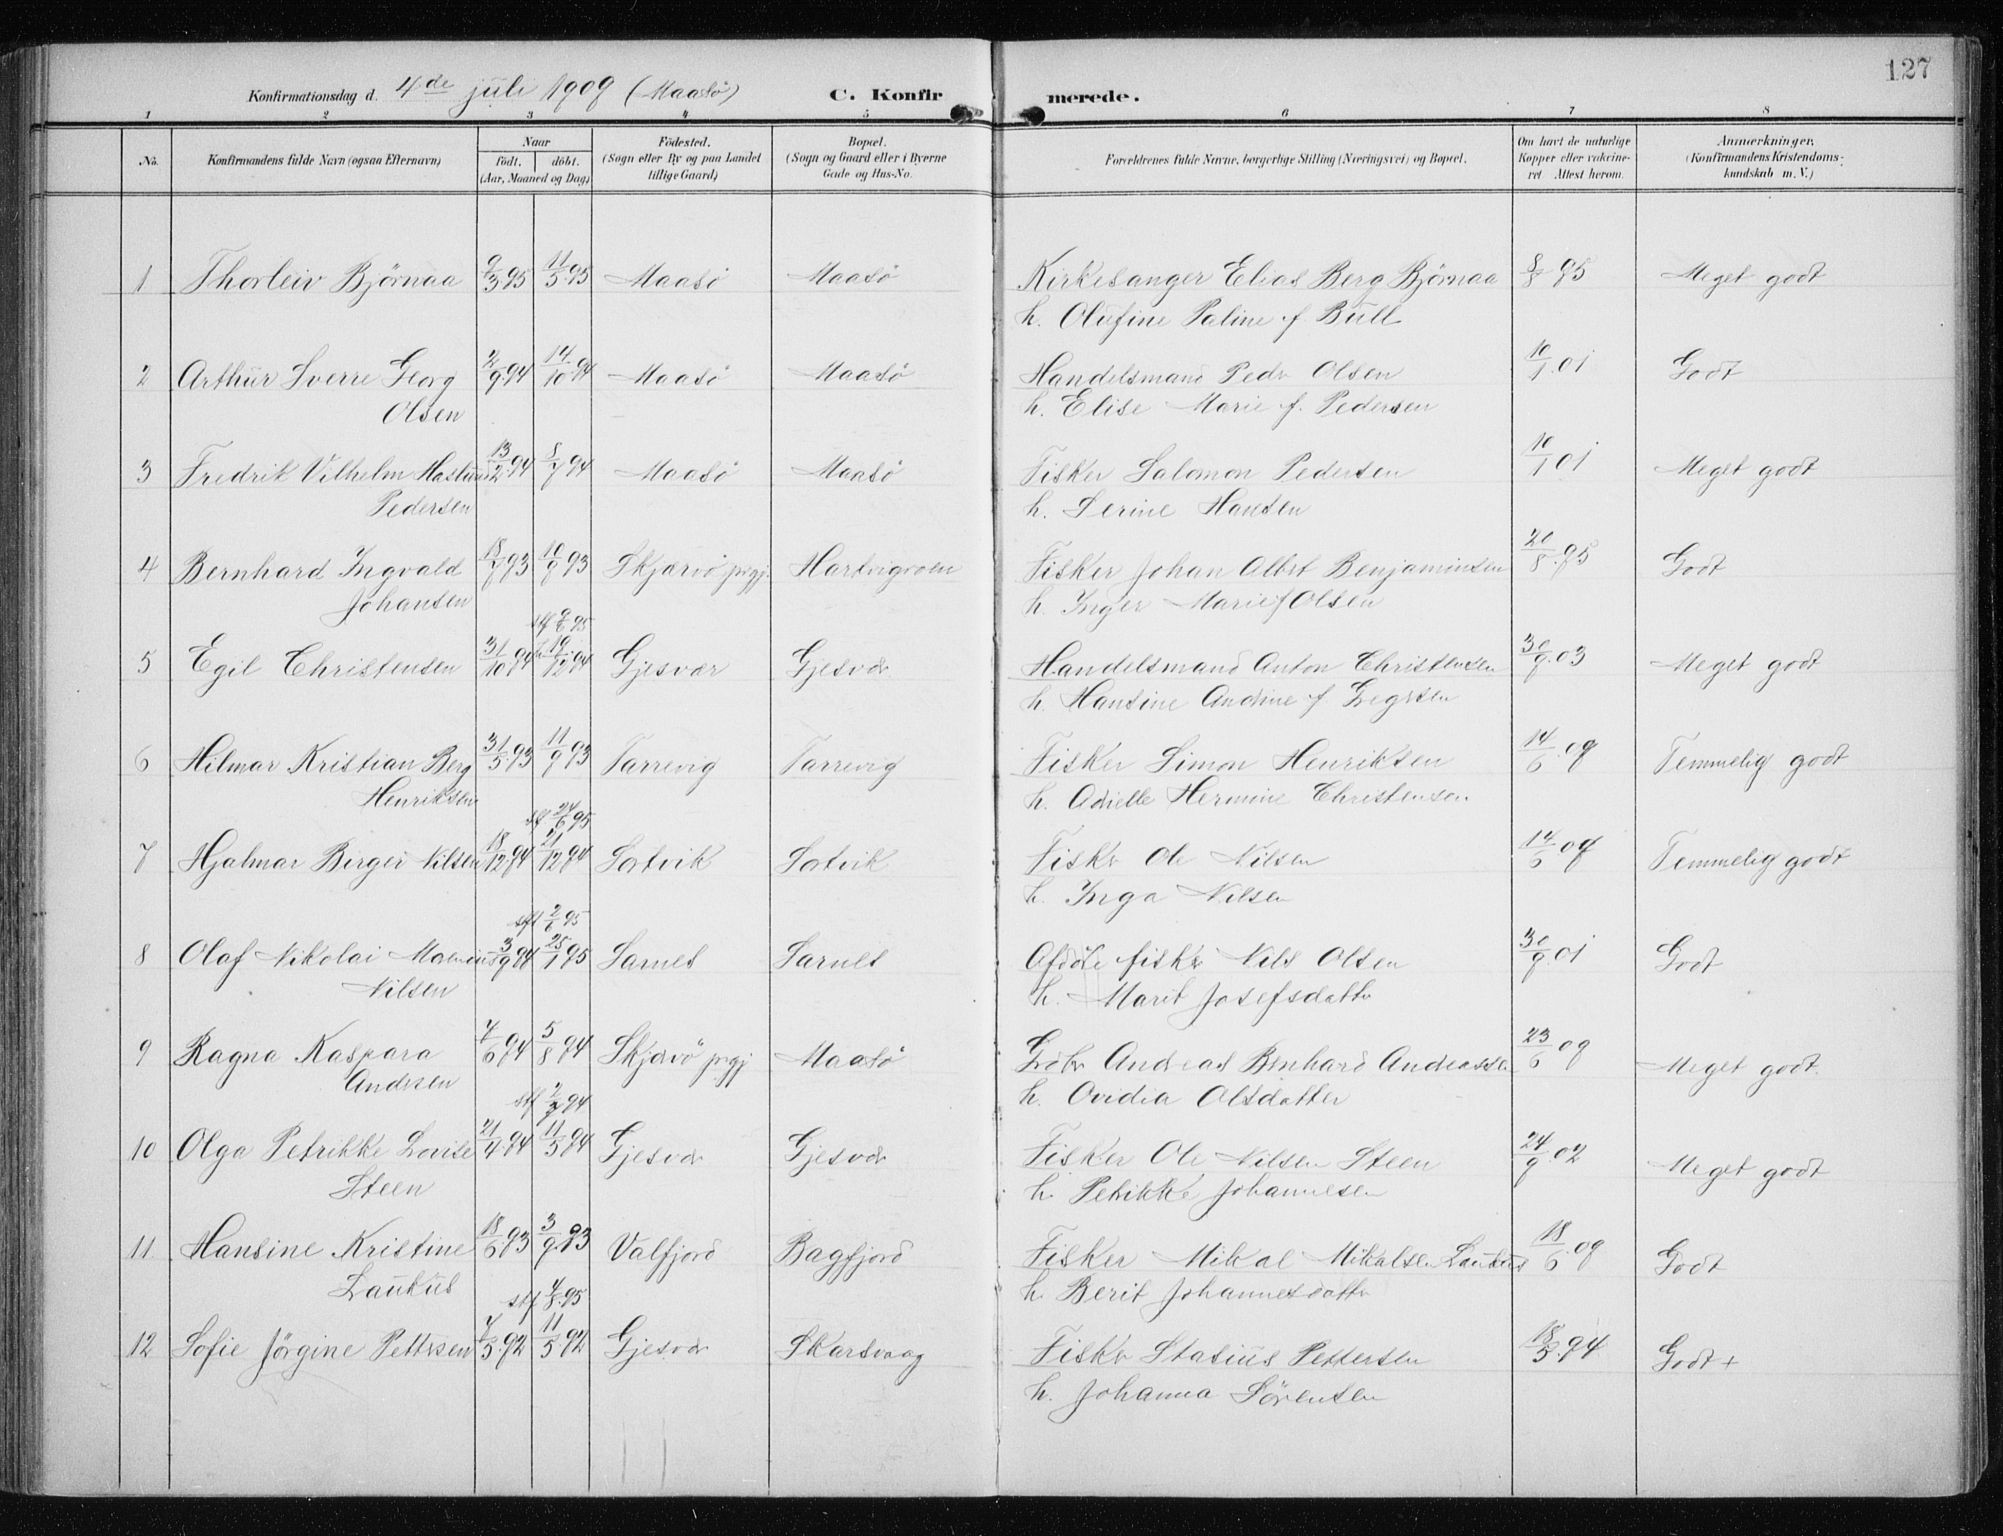 127
Konfirmationsdag d. 4de juli 1909 (Maasö) C. Konfirmerede.
1 2 3 4 5 6 7 8
No. Konfirmandens fulde Navn (ogsaa Efternavn) Naar født. døbt. (Aar, Maaned og Dag) Födested. (Sogn eller By og paa Landet tillige Gaard) Bopæl. (Sogn og Gaard eller i Byerne Gade og Hus-No. Forældrenes fulde Navne, borgerlige Stilling (Næringsvei) og Bopæl. Om havt de naturlige Kopper eller vaccineret Attest herom. Anmærkninger. (Konfirmandens Kristendomskundskab m. V.)
1 Thorleiv Björnaa 9/3 95 11/5 95 Maasö Maasö Kirkesanger Elias Berg Björnaa 8/8 95 Meget godt
h. Olufine Paline f. Bull
2 Arthur Sverre Georg 2/9 94 14/10 94 Maasö Maasö Handelsmand Peder Olsen 10/1 01 Godt
Olsen h. Elise Marie f. Pedersen
3 Fredrik Vilhelm 13/2 94 8/7 94 Maasö Maasö Fisker Salomon Pedersen 10/1 01 Meget godt
Pedersen h. Serine Hansen
4 Bernhard Ingvald 18/7 93 10/9 93 Skjærvö prgj. Fisker Johan Albert Benjaminsen 20/8 95 Godt
Johansen h. Inger Marie f Olsen
5 Egil Christensen 31/10 94 Gjesvær Gjesvær Handelsmand Anton Christensen 30/9 03 Meget godt
h. Hansine Andrine f
6 Hilmar Kristian Berg 31/5 93 11/9 93 Tarrevig Tarrevig Fisker Simon Henriksen 14/6 09 Temmelig godt
Henriksen h. Hermine Christensen
stf 24/6 95
7 Hjalmar Birger Nilsen 18/12 94 21/12 94 Sortvik Sortvik Fisker Ole Nilsen 14/6 09 Temmelig godt
h. Inga Nilsen
stf 2/6 95
8 Olaf Nikolai 3/9 94 25/1 95 Sarnes Sarnes Afdöde fisker Nils Olsen 30/9 01 Godt
Nilsen h. Marit Josefsdatter
9 Ragna Kaspara 7/6 94 5/8 94 Skjærvö prgj Maasö Andreas Bernhard Andreassen 23/6 09 Meget godt.
Andersen h. Ovidia Olsdatter
10 Olga Petrikke Lovise 21/4 94 11/5 94 Gjesvær Gjesvær Fisker Ole Nilsen Steen 24/9 02 Meget godt
Steen h. Petrikke Johannesen
11 Hansine Kristine 18/6 93 3/9 93 Valfjord Bagfjord Fisker Mikal Mikalsen Laukus 18/6 09 Godt
Laukus h. Berit Johannesdatter
stf 4/8 95
12 Sofie Jörgine Pettersen 7/5 92 11/5 92 Gjesvær Skarsvaag Fisker Stasius Pettersen 18/5 94 Godt +
h. Johanna Sörensen